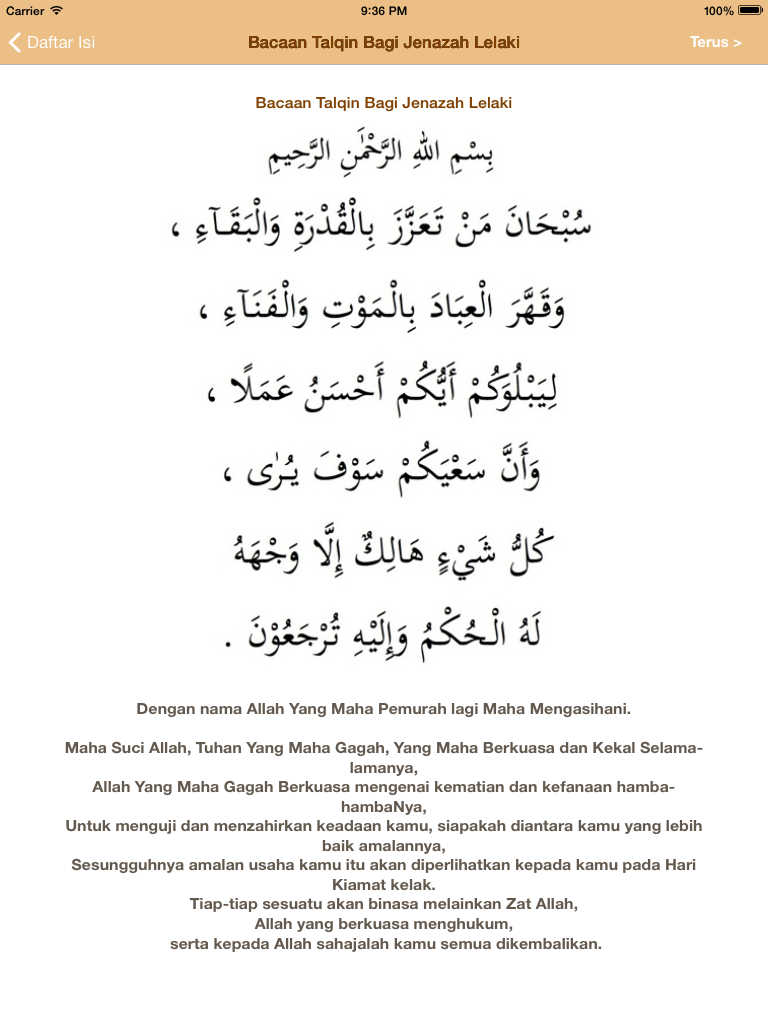 Carrier 9:36 PM 100%
Daftar Isi Bacaan Talqin Bagi Jenazah Lelaki Terus >
Bacaan Talqin Bagi Jenazah Lelaki
بِسْمِ اللهِ الرَّحْمٰنِ الرَّحِيمِ
سُبْحَانَ مَنْ تَعَزَّزَ بِالْقُدْرَةِ وَالْبَقَآءِ ،
وَقَهَّرَ الْعِبَادَ بِالْمَوْتِ وَالْفَنَآءِ ،
لِيَبْلُوَكُمْ أَيُّكُمْ أَحْسَنُ عَمَلًا ،
وَأَنَّ سَعْيَكُمْ سَوْفَ يُرٰى ،
كُلُّ شَيْءٍ هَالِكٌ إِلَّا وَجْهَهُ
لَهُ الْحُكْمُ وَإِلَيْهِ تُرْجَعُوْنَ .
Dengan nama Allah Yang Maha Pemurah lagi Maha Mengasihani.
Maha Suci Allah, Tuhan Yang Maha Gagah, Yang Maha Berkuasa dan Kekal Selama-
lamanya,
Allah Yang Maha Gagah Berkuasa mengenai kematian dan kefanaan hamba-
hambaNya,
Untuk menguji dan menzahirkan keadaan kamu, siapakah diantara kamu yang lebih
baik amalannya,
Sesungguhnya amalan usaha kamu itu akan diperlihatkan kepada kamu pada Hari
Kiamat kelak.
Tiap-tiap sesuatu akan binasa melainkan Zat Allah,
Allah yang berkuasa menghukum,
serta kepada Allah sahajalah kamu semua dikembalikan.